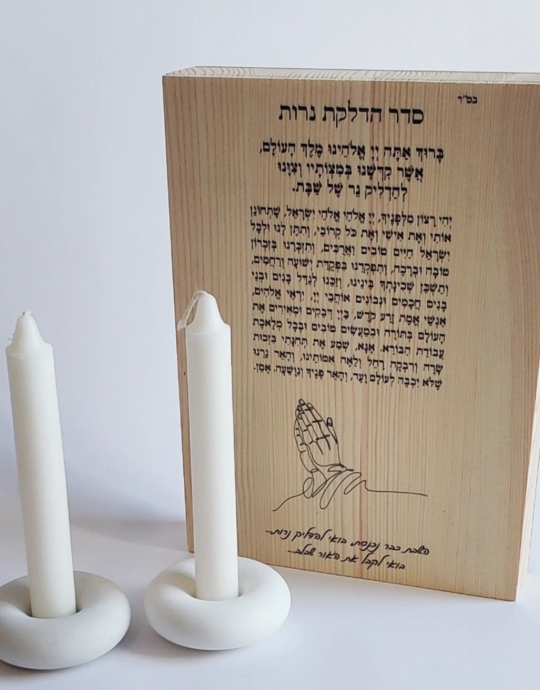 בס"ד
סדר הדלקת נרות
בָּרוּךְ אַתָּה יְיָ אֱלֹהֵינוּ מֶלֶךְ הָעוֹלָם,
אֲשֶׁר קִדְּשָׁנוּ בְּמִצְוֹתָיו וְצִוָּנוּ
לְהַדְלִיק נֵר שֶׁל שַׁבָּת.
יְהִי רָצוֹן מִלְּפָנֶיךָ, יְיָ אֱלֹהַי אֱלֹהֵי יִשְׂרָאֵל, שֶׁתְּחוֹנֵן
אוֹתִי וְאֶת אִישִׁי וְאֶת כֹּל קְרוֹבַי, וְתִתֵּן לָנוּ וּלְכָל
יִשְׂרָאֵל חַיִּים טוֹבִים וַאֲרֻכִּים, וְתִזְכְּרֵנוּ בְּזִכְרוֹן
טוֹבָה וּבְרָכָה, וְתִפְקְדֵנוּ בִּפְקֻדַּת יְשׁוּעָה וְרַחֲמִים,
וְתַשְׁכֵּן שְׁכִינָתְךָ בֵּינֵינוּ, וְזַכֵּנוּ לְגַדֵּל בָּנִים וּבְנֵי
בָנִים חֲכָמִים וּנְבוֹנִים אוֹהֲבֵי יְיָ, יִרְאֵי אֱלֹהִים,
אַנְשֵׁי אֱמֶת זֶרַע קֹדֶשׁ, בַּיְיָ דְּבֵקִים וּמְאִירִים אֶת
הָעוֹלָם בְּתוֹרָה וּבְמַעֲשִׂים טוֹבִים וּבְכָל מְלֶאכֶת
עֲבוֹדַת הַבּוֹרֵא. אָנָּא, שְׁמַע אֶת תְּחִנָּתִי בִּזְכוּת
שָׂרָה וְרִבְקָה רָחֵל וְלֵאָה אִמּוֹתֵינוּ, וְהָאֵר נֵרֵנוּ
שֶׁלֹּא יִכְבֶּה לְעוֹלָם וָעֶד, וְהָאֵר פָּנֶיךָ וְנִוָּשֵׁעָה. אָמֵן.
השבת כבר נכנסת בואי להדליק נרות...
בואי לקבל את האור שבלב...